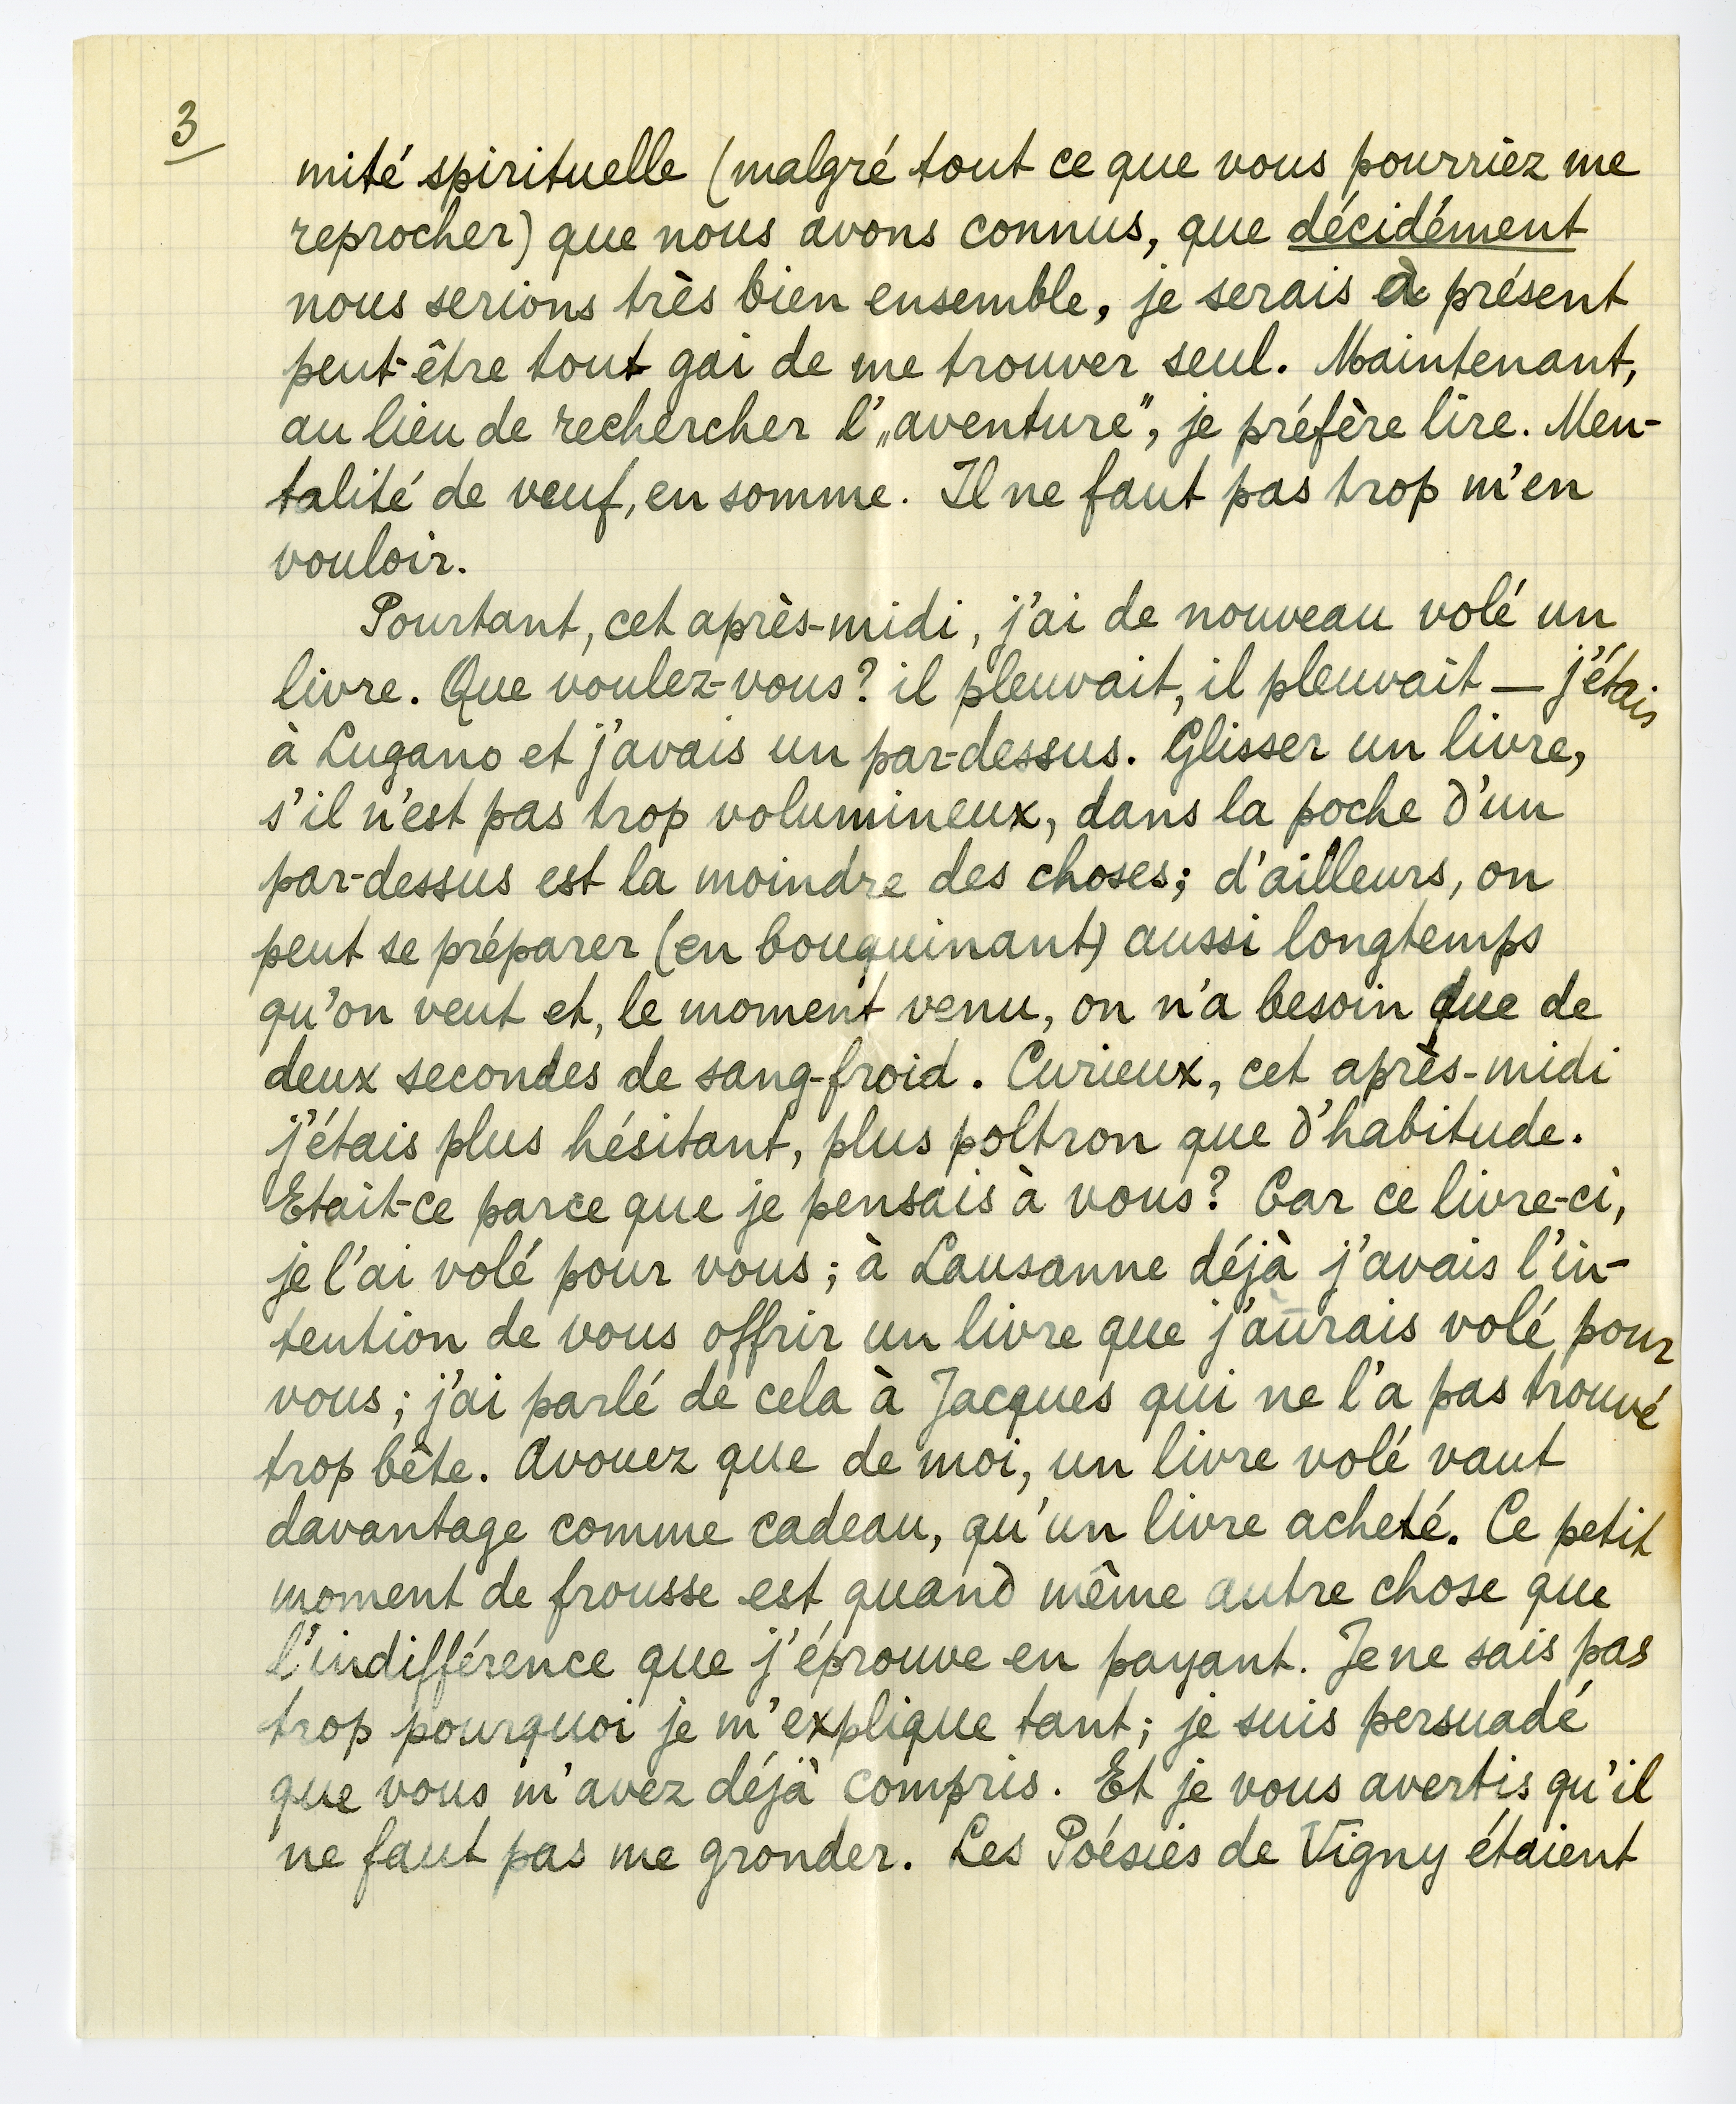 3
mité spirituelle (malgré tout ce que vous pourriez me
reprocher) que nous avons connus, que décidément
nous serions très bien ensemble, je serais à présent
peut-être tout gai de me trouver seul. Maintenant,
au lieu de rechercher l'„aventure”, je préfère lire. Men-
talité de veuf, en somme. Il ne faut pas trop m'en
vouloir.
Pourtant, cet après-midi, j'ai de nouveau volé un
livre. Que voulez-vous? il pleuvait, il pleuvait — j'étais
à Lugano et j'avais un par-dessus. Glisser un livre,
s'il n'est pas trop volumineux, dans la poche d'un
par-dessus est la moindre des choses; d'ailleurs, on
peut se préparer (en bouquinant) aussi longtemps
qu'on veut et, le moment venu, on n'a besoin que de
deux secondes de sang-froid. Curieux, cet après-midi
j'étais plus hésitant, plus poltron que d'habitude.
Etait-ce parce que je pensais à vous? Car ce livre-ci,
je l'ai volé pour vous; à Lausanne déjà j'avais l'in-
tention de vous offrir un livre que j'aurais volé pour
vous; j'ai parlé de cela à Jacques qui ne l'a pas trouvé
trop bête. Avouez que de moi, un livre volé vaut
davantage comme cadeau, qu'un livre acheté. Ce petit
moment de frousse est quand même autre chose que
l'indifférence que j'éprouve en payant. Je ne sais pas
trop pourquoi je m'explique tant; je suis persuadé
que vous m'avez déjà compris. Et je vous avertis qu'il
ne faut pas me gronder. Les Poésies de Vigny étaient